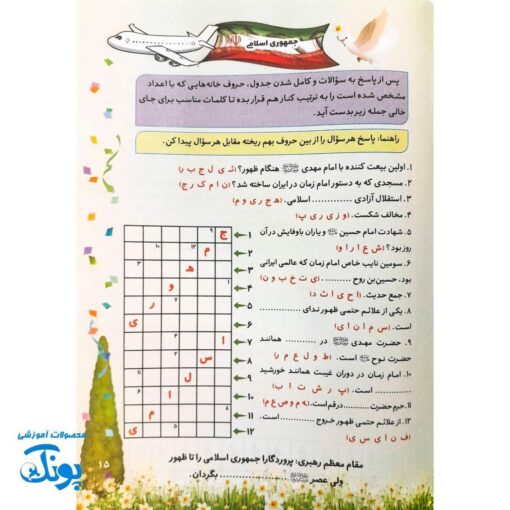 جمهوری اسلامی
پس از پاسخ به سؤالات و کامل شدن جدول، حروف خانه‌هایی که با اعداد
مشخص شده است را به ترتیب کنار هم قرار بده تا کلمات مناسب برای جای
خالی جمله زیر بدست آید.
راهنما: پاسخ هر سؤال را از بین حروف بهم ریخته مقابل هر سؤال پیدا کن.
۱. اولین بیعت کننده با امام مهدی هنگام ظهور؟ (ئ ی ل ج ب ر)
۲. مسجدی که به دستور امام زمان در ایران ساخته شد؟ (ن ا م ک ر ج)
۳. استقلال آزادی ............. اسلامی. (ه ج ر ی و م)
۴. مخالف شکست. (و ز ی ر ی پ)
۵. شهادت امام حسین و یاران باوفایش در آن
روز بود؟ (ش ع ا ر ا و)
۶. سومین نایب خاص امام زمان که عالمی ایرانی
بود، حسین‌بن روح ........... (ی ت خ ب و ن)
۷. جمع حدیث. (ا ح ی ا ث د)
۸. یکی از علائم حتمی ظهور ندای ............
است. (س م ا ن ا ی)
۹. حضرت مهدی در ........... همانند
حضرت نوح است. (ط و ل ع م ر)
۱۰. امام زمان در دوران غیبت همانند خورشید
............ است. (پ ر ش ت ا ب)
۱۱. حرم حضرت ........... در قم است. (ه م و ص ع م)
۱۲. از علائم حتمی ظهور خروج ............ است.
(ف ن ا ی س ی)
ج ۹ ۱
م ۱۲ ۱۰ ۲
ه ۳ ۳
و ۱ ۴
ر ۵
ی ۶
ا ۷
س ۸
ل ۹
ا ۱۰
م ۱۱
ی ۱۲
مقام معظم رهبری: پروردگارا جمهوری اسلامی را تا ظهور
ولی عصر ........................ بگردان.
۱۵
محصولات آموزشی
پونک